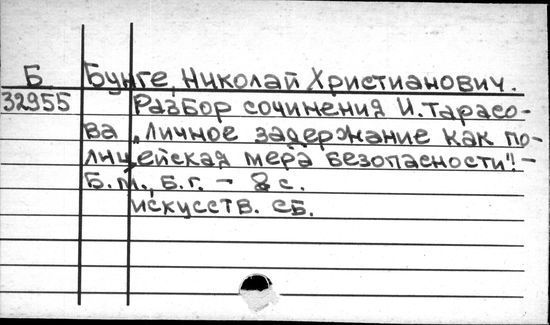 Б Бунге, Николай Христианович.
32955 Разбор сочинения И. Тарасо-
ва „Личное задержание как по-
лицейская мера безопасности“! –
Б. м., б. г. – 8 с.
искусств. сб.